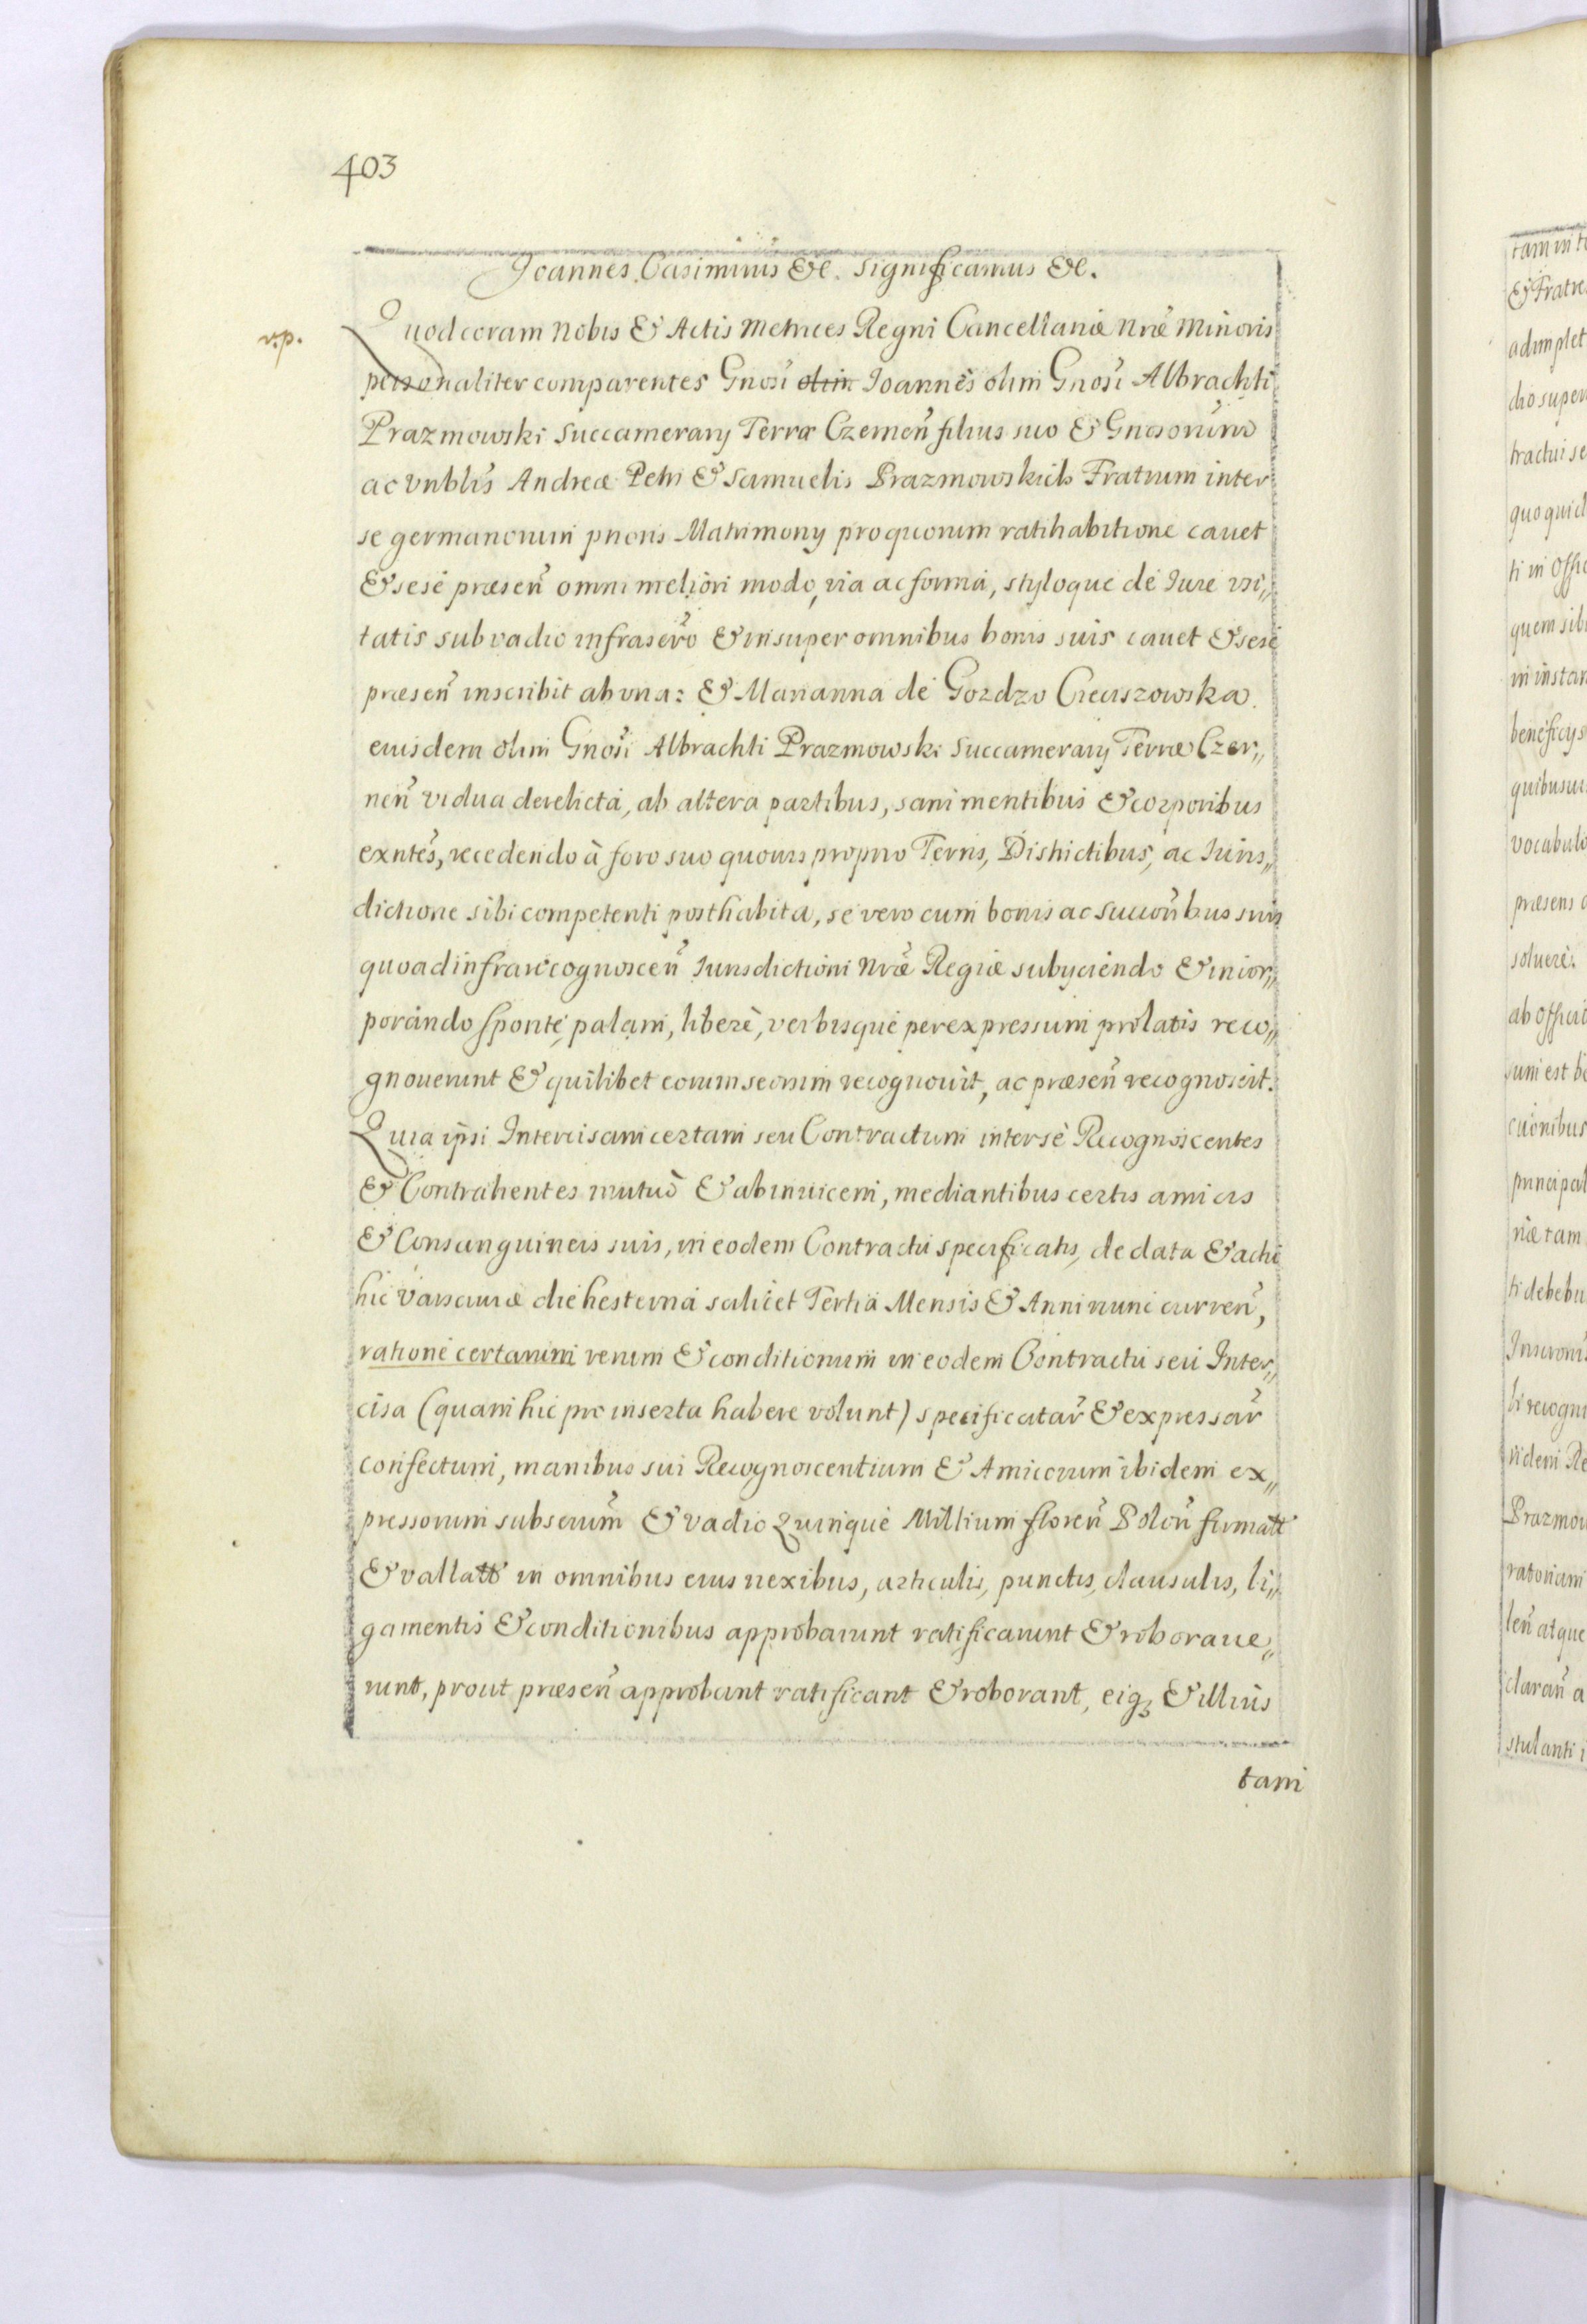 403
Joannes Casimirus &c. Significamus &c.
v.p.
Quod coram Nobis & Actis Metrices Regni Cancellariæ Nræ Minoris
personaliter comparentes Gnosi olim Joannes olim Gnosi Albrachti
Prazmowski Succamerarij Terræ Czernen filius suo & Gnosorum
ac Vnblis Andreæ Petri & Samuelis Prazmowskich Fratrum inter
se germanorum prioris Matrimonij pro quorum ratihabitione cauet
& sese præsen omni meliori modo, via ac forma, styloque de Iure vsi„
tatis sub vadio infrascro & insuper omnibus bonis suis cauet & sese
præsen inscribit ab vna: & Marianna de Gozdzo Cieciszowska
eiusdem olim Gnosi Albrachti Prazmowski Succamerarij Terræ Czer„
nen vidua derelicta, ab altera partibus, sani mentibus & corporibus
exntes, recedendo à foro suo quouis proprio Terris, Districtibus, ac Iuris„
dictione sibi competenti posthabita, se vero cum bonis ac succoribus suis
quoad infra recognoscen Iurisdictioni Nræ Regiæ subijciendo & incor„
porando sponte, palam, liberè, verbisque per expressum prolatis reco„
gnouerunt & quilibet eorum seorsim recognouit, ac præsen recognoscit.
Quia ipsi Intercisam certam seu Contractum inter se Recognoscentes
& Contrahentes mutuò & ab inuicem, mediantibus certis amicis
& Consanguineis suis, in eodem Contractu specificatis, de data & actu
hic Varsauiæ die hesterna scilicet Tertia Mensis & Anni nunc curren,
ratione certarum rerum & conditionum in eodem Contractu seu Inter„
cisa (quam hic pro inserta habere volunt) specificatar & expressar
confectum, manibus sui Recognoscentium & Amicorum ibidem ex„
pressorum subscrum & vadio Quinque Millium floren Polon firmatt
& vallatt in omnibus eius nexibus, articulis, punctis, clausulis, li„
gamentis & conditionibus approbarunt ratificarunt & roboraue„
runt, prout præsen approbant ratificant & roborant, eiq3 & illius
tam